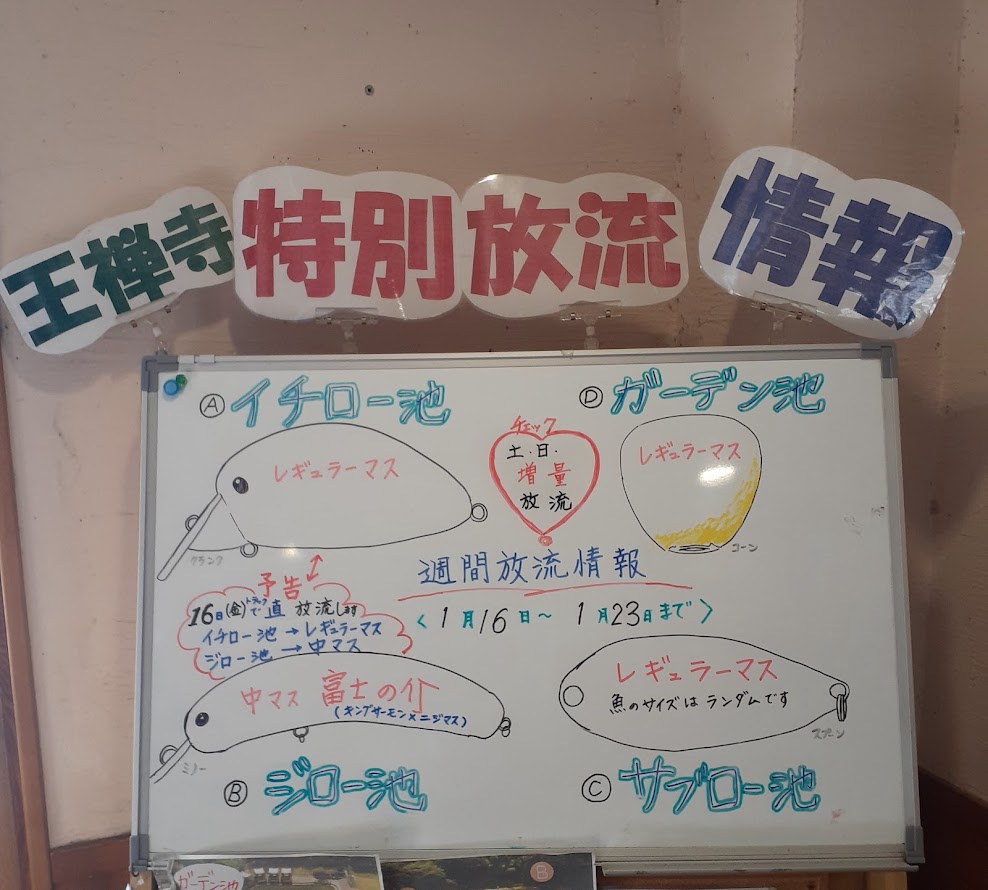 王禅寺 特別 放流 情報
Ⓐ イチロー池
レギュラーマス
クランク
チェック
土.日.
増量
放流
Ⓓ ガーデン池
レギュラーマス
コーン
週間放流情報
〈 1月16日～ 1月23日まで 〉
予告
16日(金)トラックで直放流します
イチロー池 → レギュラーマス
ジロー池 → 中マス
中マス 富士の介
(キングサーモン×ニジマス)
ミノー
Ⓑ ジロー池
レギュラーマス
魚のサイズは ランダムです
スプーン
Ⓒ サブロー池
ガーデン池
B